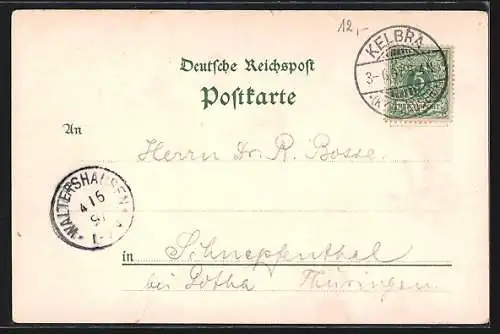 12,-
Deutsche Reichspost
Postkarte
KELBRA
5
An
Herrn Dr. R. Bosse.
WALTERSHAUSEN
4 6
in Schnepfenthal
bei Gotha Thüringen.